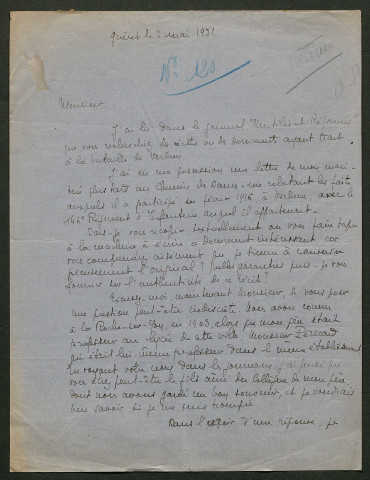 Guéret le 2 mai 1931
N° 120
Monsieur,
J'ai lu dans le journal "Mutilés et Réformés"
que vous recherchiez des récits ou des documents ayant trait
à la bataille de Verdun.
J'ai en ma possession une lettre de mon mari
tué plus tard au Chemin des Dames - me relatant les faits
auxquels il a participé en février 1916, à Verdun, avec le
146e Régiment d'Infanterie auquel il appartenait.
Dois-je vous recopier textuellement ou vous faire taper
à la machine à écrire ce document intéressant car
vous comprendrez aisément que je tienne à conserver
pieusement l'original ? Quelles garanties puis-je vous
fournir sur l'authenticité de ce récit ?
Excusez-moi maintenant Monsieur de vous poser
une question peut-être indiscrète. Nous avons connu
à la Roche-sur-Yon, en 1903, alors que mon père était
professeur au lycée de cette ville Monsieur Péricard
qui était lui-même professeur dans le même établissement
En voyant votre nom dans les journaux, j'ai pensé que
vous étiez peut-être le fils aîné du collègue de mon père
dont nous avons gardé un bon souvenir, et je voudrais
bien savoir si je me suis trompée
Dans l'espoir d'une réponse, je